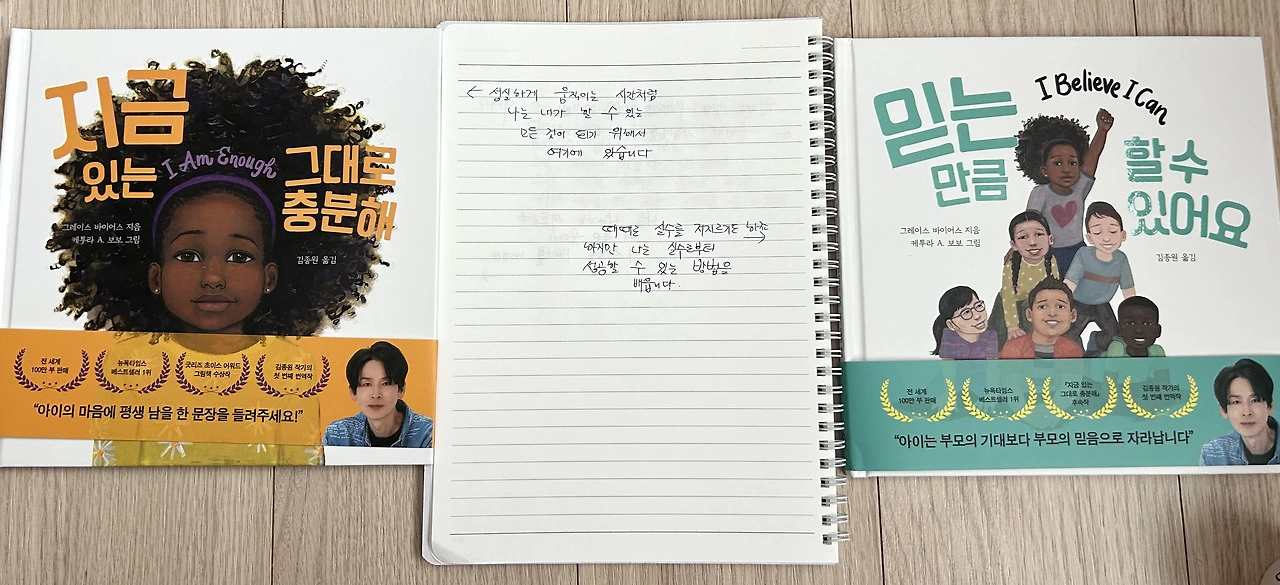 지금
있는
I Am Enough
그대로
충분해
그레이스 바이어스 지음
케투라 A. 보보 그림
김종원 옮김
전 세계
100만 부 판매
뉴욕타임스
베스트셀러 1위
굿리즈 초이스 어워드
그림책 수상작
김종원 작가의
첫 번째 번역작
“아이의 마음에 평생 남을 한 문장을 들려주세요!”
← 성실하게 움직이는 시간처럼
나는 내가 할 수 있는
모든 것이 되기 위해서
여기에 왔습니다
때때로 실수를 저지르기도 하죠 →
하지만 나는 실수로부터
성공할 수 있는 방법을
배웁니다.
믿는
만큼
I Believe I Can
할 수
있어요
그레이스 바이어스 지음
케투라 A. 보보 그림
김종원 옮김
전 세계
100만 부 판매
뉴욕타임스
베스트셀러 1위
『지금 있는
그대로 충분해』
후속작
김종원 작가의
첫 번째 번역작
“아이는 부모의 기대보다 부모의 믿음으로 자라납니다”